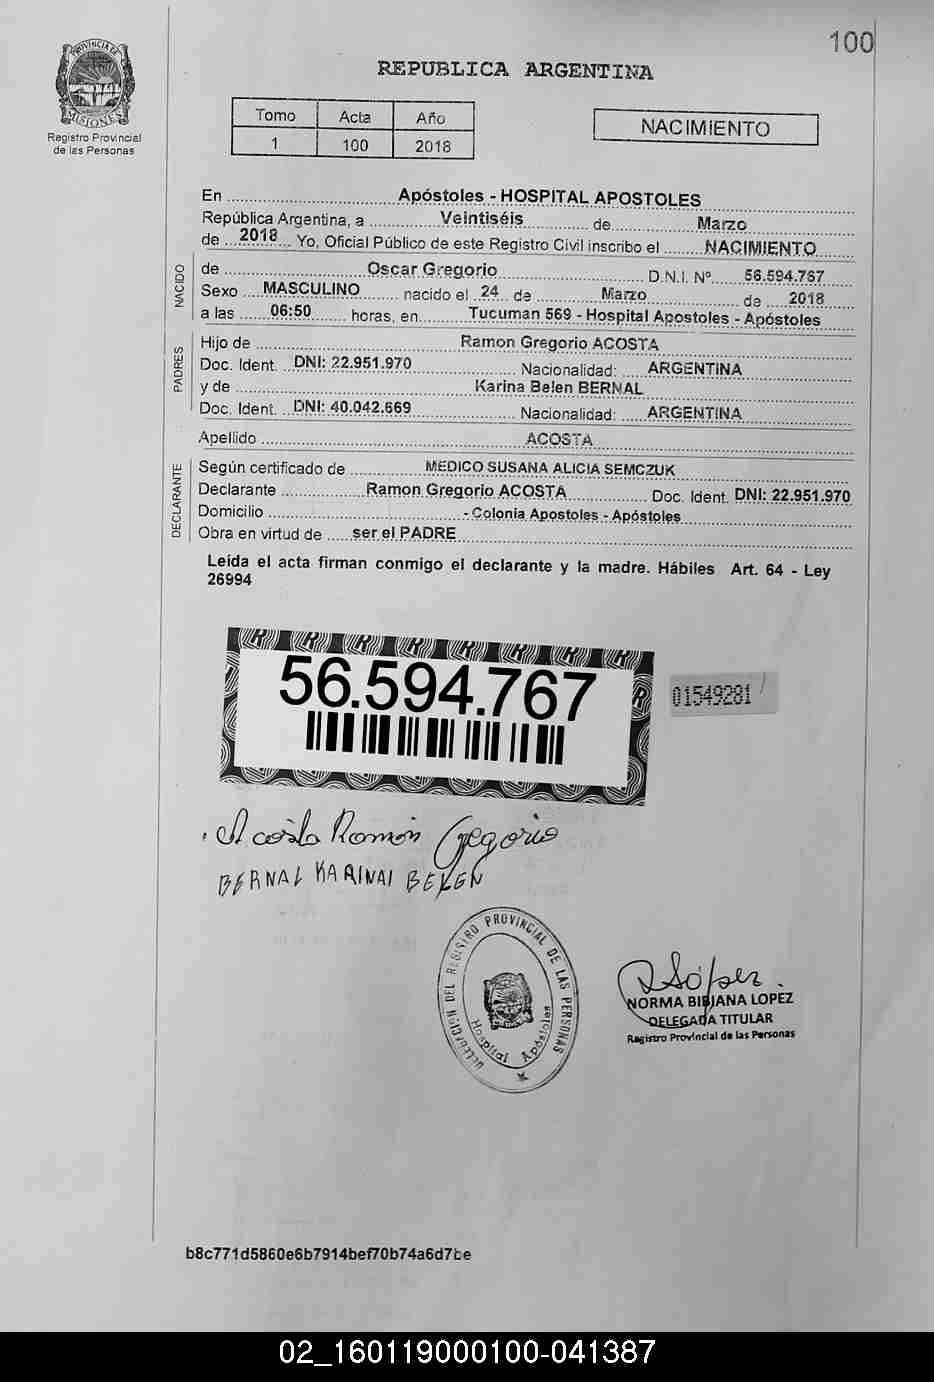 100
REPUBLICA ARGENTINA
PROVINCIA DE MISIONES
Registro Provincial
de las Personas
Tomo Acta Año
1 100 2018
NACIMIENTO
En Apóstoles - HOSPITAL APOSTOLES
República Argentina, a Veintiséis de Marzo
de 2018 Yo, Oficial Público de este Registro Civil inscribo el NACIMIENTO
NACIDO
de Oscar Gregorio D.N.I. Nº 56.594.767
Sexo MASCULINO nacido el 24 de Marzo de 2018
a las 06:50 horas, en Tucuman 569 - Hospital Apostoles - Apóstoles
PADRES
Hijo de Ramon Gregorio ACOSTA
Doc. Ident. DNI: 22.951.970 Nacionalidad: ARGENTINA
y de Karina Belen BERNAL
Doc. Ident. DNI: 40.042.669 Nacionalidad: ARGENTINA
Apellido ACOSTA
DECLARANTE
Según certificado de MEDICO SUSANA ALICIA SEMCZUK
Declarante Ramon Gregorio ACOSTA Doc. Ident. DNI: 22.951.970
Domicilio - Colonia Apostoles - Apóstoles
Obra en virtud de ser el PADRE
Leída el acta firman conmigo el declarante y la madre. Hábiles Art. 64 - Ley
26994
56.594.767
01549281
Acosta Ramón Gregorio
BERNAL KARINAI BELEN
DELEGACION DEL REGISTRO PROVINCIAL DE LAS PERSONAS
Hospital Apóstoles
NORMA BIBIANA LOPEZ
DELEGADA TITULAR
Registro Provincial de las Personas
b8c771d5860e6b7914bef70b74a6d7be
02_160119000100-041387